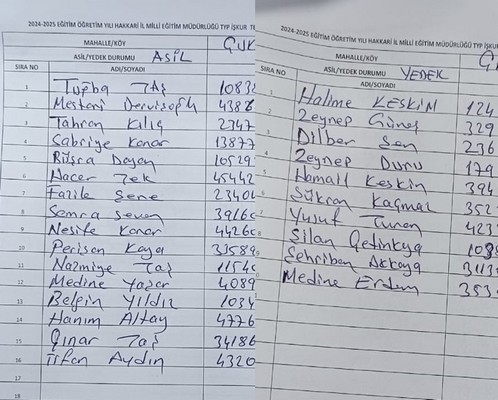 2024-2025 EĞİTİM ÖĞRETİM YILI HAKKARİ İL MİLLİ EĞİTİM MÜDÜRLÜĞÜ TYP İŞKUR TE
MAHALLE/KÖY ÇUK
ASİL/YEDEK DURUMU ASİL
SIRA NO ADI/SOYADI
1 Tuğba TAŞ 10838
2 Mestani Dervişoğlu 4388
3 Tahran Kılıç 2347
4 Sabriye Konar 13877
5 Büşra Doğan 10529
6 Hacer Tek 45442
7 Fazile Şene 23404
8 Semra Seven 39166
9 Nesife Konar 44260
10 Perişan Kaya 33589
11 Nazmiye Taş 11540
12 Medine Yaşar 4089
13 Belgin Yıldız 1034
14 Hanım Altay 4776
15 Çınar Taş 34186
16 İrfan Aydın 4320
17
18
2024-2025 EĞİTİM ÖĞRETİM YILI HAKKARİ İL MİLLİ EĞİTİM MÜDÜRLÜĞÜ TYP İŞKUR
MAHALLE/KÖY Ç
ASİL/YEDEK DURUMU YEDEK
SIRA NO ADI/SOYADI
1 Halime KESKİN 124
2 Zeynep Güneş 329
3 Dilber Şen 236
4 Zeynep Duru 179
5 Hamail Keskin 394
6 Şükran Kaçmaz 352
7 Yusuf Turan 423
Şilan Çetinkaya 1038
Şehriban Akkaya 3113
Medine Erdem 353